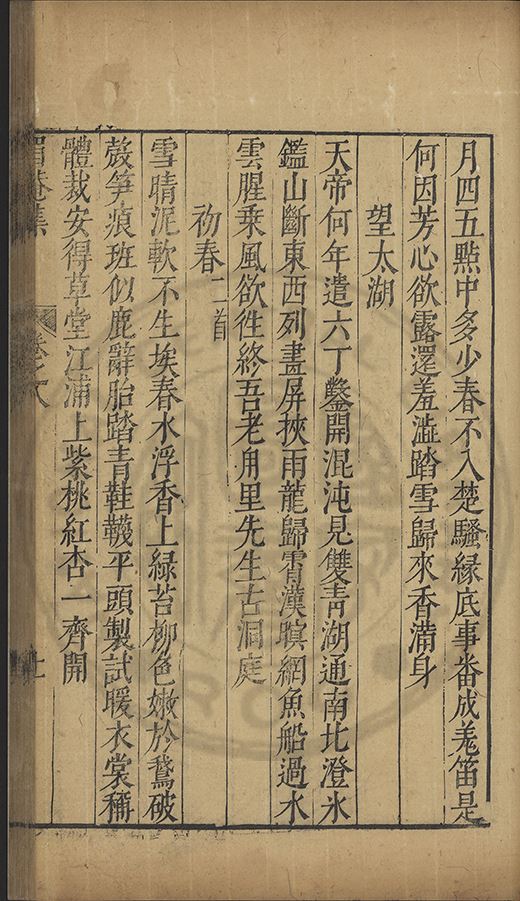 月四五點中多少春不入楚騷緣底事番成羌笛是
何因芳心欲露還羞澁踏雪歸來香滿身
望太湖
天帝何年遣六丁鑿開混沌見雙青湖通南北澄氷
鑑山斷東西列畫屏挾雨龍歸霄漢暝網魚船過水
雲腥乘風欲徃終吾老甪里先生古洞庭
初春二首
雪晴泥軟不生埃春水浮香上緑苔柳色嫩於鵞破
殼笋痕班似鹿辭胎踏青鞋韈平頭製試暖衣裳稱
體裁安得草堂江浦上紫桃紅杏一齊開
眉菴集
卷之八